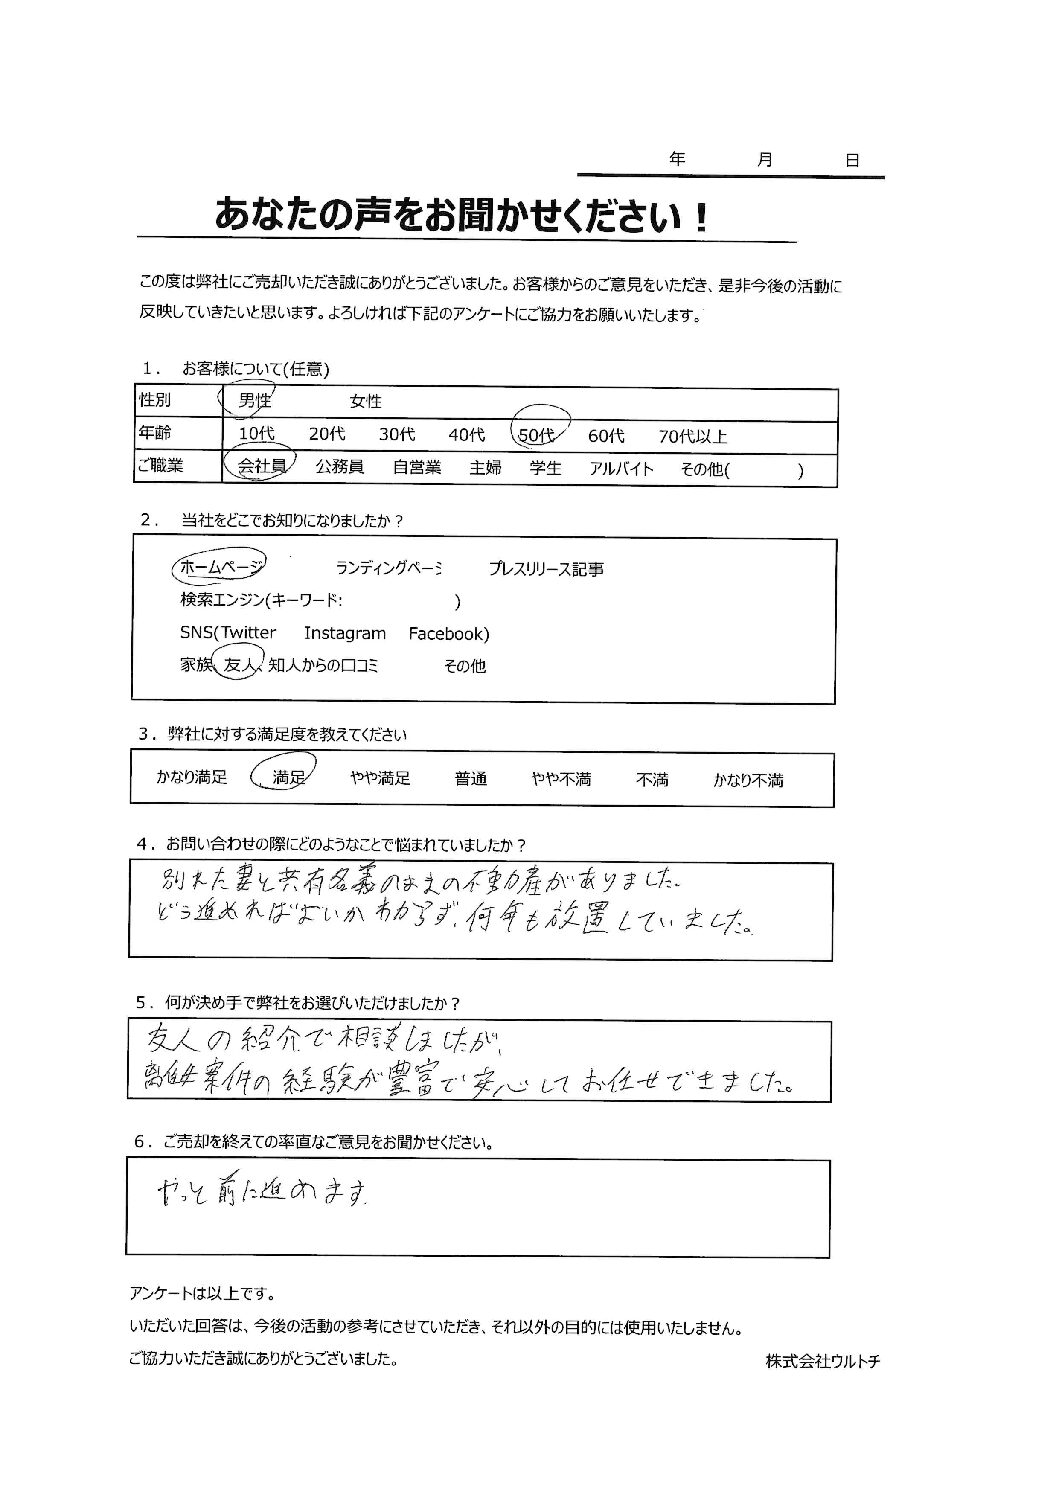 年 月 日
あなたの声をお聞かせください！
この度は弊社にご売却いただき誠にありがとうございました。お客様からのご意見をいただき、是非今後の活動に
反映していきたいと思います。よろしければ下記のアンケートにご協力をお願いいたします。
1． お客様について(任意)
性別 男性 女性
年齢 10代 20代 30代 40代 50代 60代 70代以上
ご職業 会社員 公務員 自営業 主婦 学生 アルバイト その他( )
2． 当社をどこでお知りになりましたか？
ホームページ ランディングページ プレスリリース記事
検索エンジン(キーワード: )
SNS(Twitter Instagram Facebook)
家族、友人、知人からの口コミ その他
3．弊社に対する満足度を教えてください
かなり満足 満足 やや満足 普通 やや不満 不満 かなり不満
4．お問い合わせの際にどのようなことで悩まれていましたか？
別れた妻と共有名義のままの不動産がありました。
どう進めればよいかわからず、何年も放置していました。
5．何が決め手で弊社をお選びいただけましたか？
友人の紹介で相談しましたが、
離婚案件の経験が豊富で安心してお任せできました。
6．ご売却を終えての率直なご意見をお聞かせください。
やっと前に進めます
アンケートは以上です。
いただいた回答は、今後の活動の参考にさせていただき、それ以外の目的には使用いたしません。
ご協力いただき誠にありがとうございました。 株式会社ウルトチ